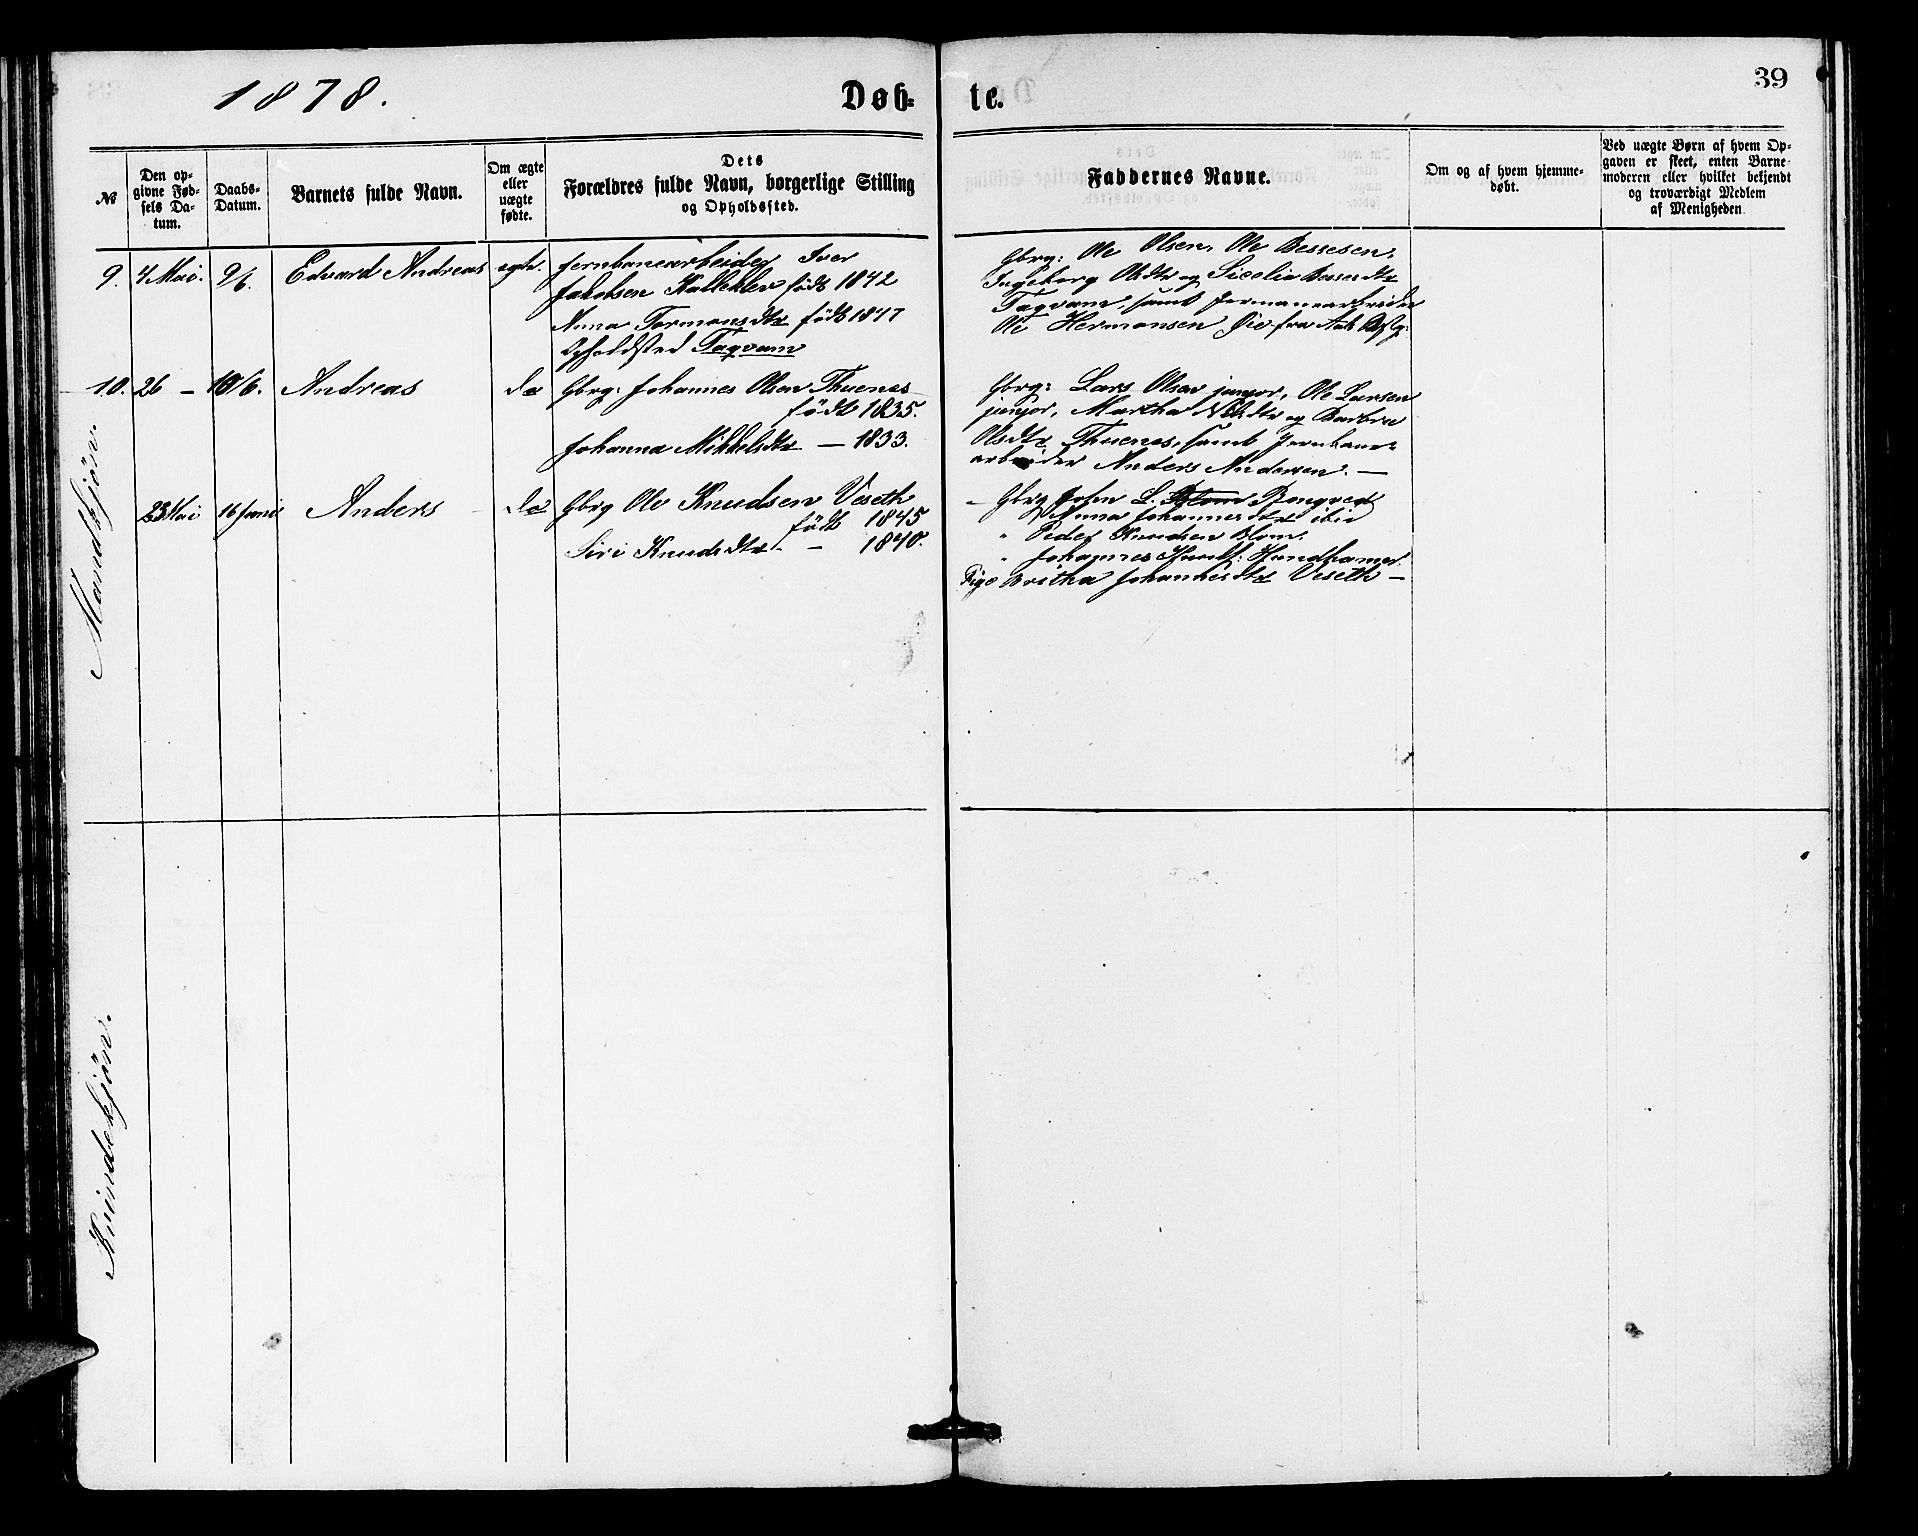 1878.
Døb-
te.
39
№
Den op-
givne Fød-
sels Da-
tum.
Daabs-
Datum.
Barnets fulde Navn.
Om ægte
eller
uægte
fødte.
Dets
Forældres fulde Navn, borgerlige Stilling
og Opholdssted.
Faddernes Navne.
Om og af hvem hjemme-
døbt.
Ved uægte Børn af hvem Op-
gaven er skeet, enten Barne-
moderen eller hvilket bekjendt
og troværdigt Medlem
af Menigheden
Mandkjøn.
9. 4 Mai. 9/6. Edvard Andreas egte. Jernbanearbeider Iver
Jakobsen født 1842
Anna Tormansdtr født 1847
Opholdsted Taqvam
Gbrg: Ole Olsen, Ole Bessesen,
Ingeborg Olsdtr og Besses dtr
Taqvam, samt
Ole Hermansen Øie fra
10. 26 — 10/6. Andreas do Gbrg: Johannes Olsen Thuenes
født 1835.
Johanna Mikkelsdtr — 1833.
Gbrg: Lars Olsen junjor, Ole Larsen
junjor, Martha dtr og Barbra
Olsdtr Thuenes, samt Jernbane-
arbeider Anders Andersen. —
23 Mai 16 Juni Anders do Gbrg Ole Knudsen Veseth
født 1845
Siri Knudsdtr — 1840.
— Gbrg John L. Blom
Anna Johannesdtr ibid
" Peder Knudsen Blom.
" Johannes Hundhamer.
Pige Britha Johannesdtr Veseth —
Kvindekjøn.